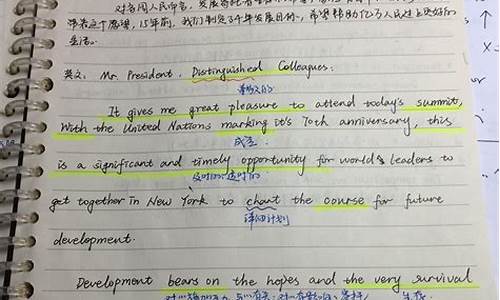 对各国人民而言，发展寄托着
带着这个愿望，15年前，我们制定了千年发展目标，希望帮助亿万人民过上更好的
生活。
英文: Mr. President, Distinguished Colleagues:
尊敬的
It gives me great pleasure to attend today's summit,
With the United Nations marking it's 70th anniversary, this
成立
is a significant and timely opportunity for world's leaders to
及时的;适时的
get together in New York to chart the course for future
详细计划
development.
Development bears on the hopes and the very survival
生存